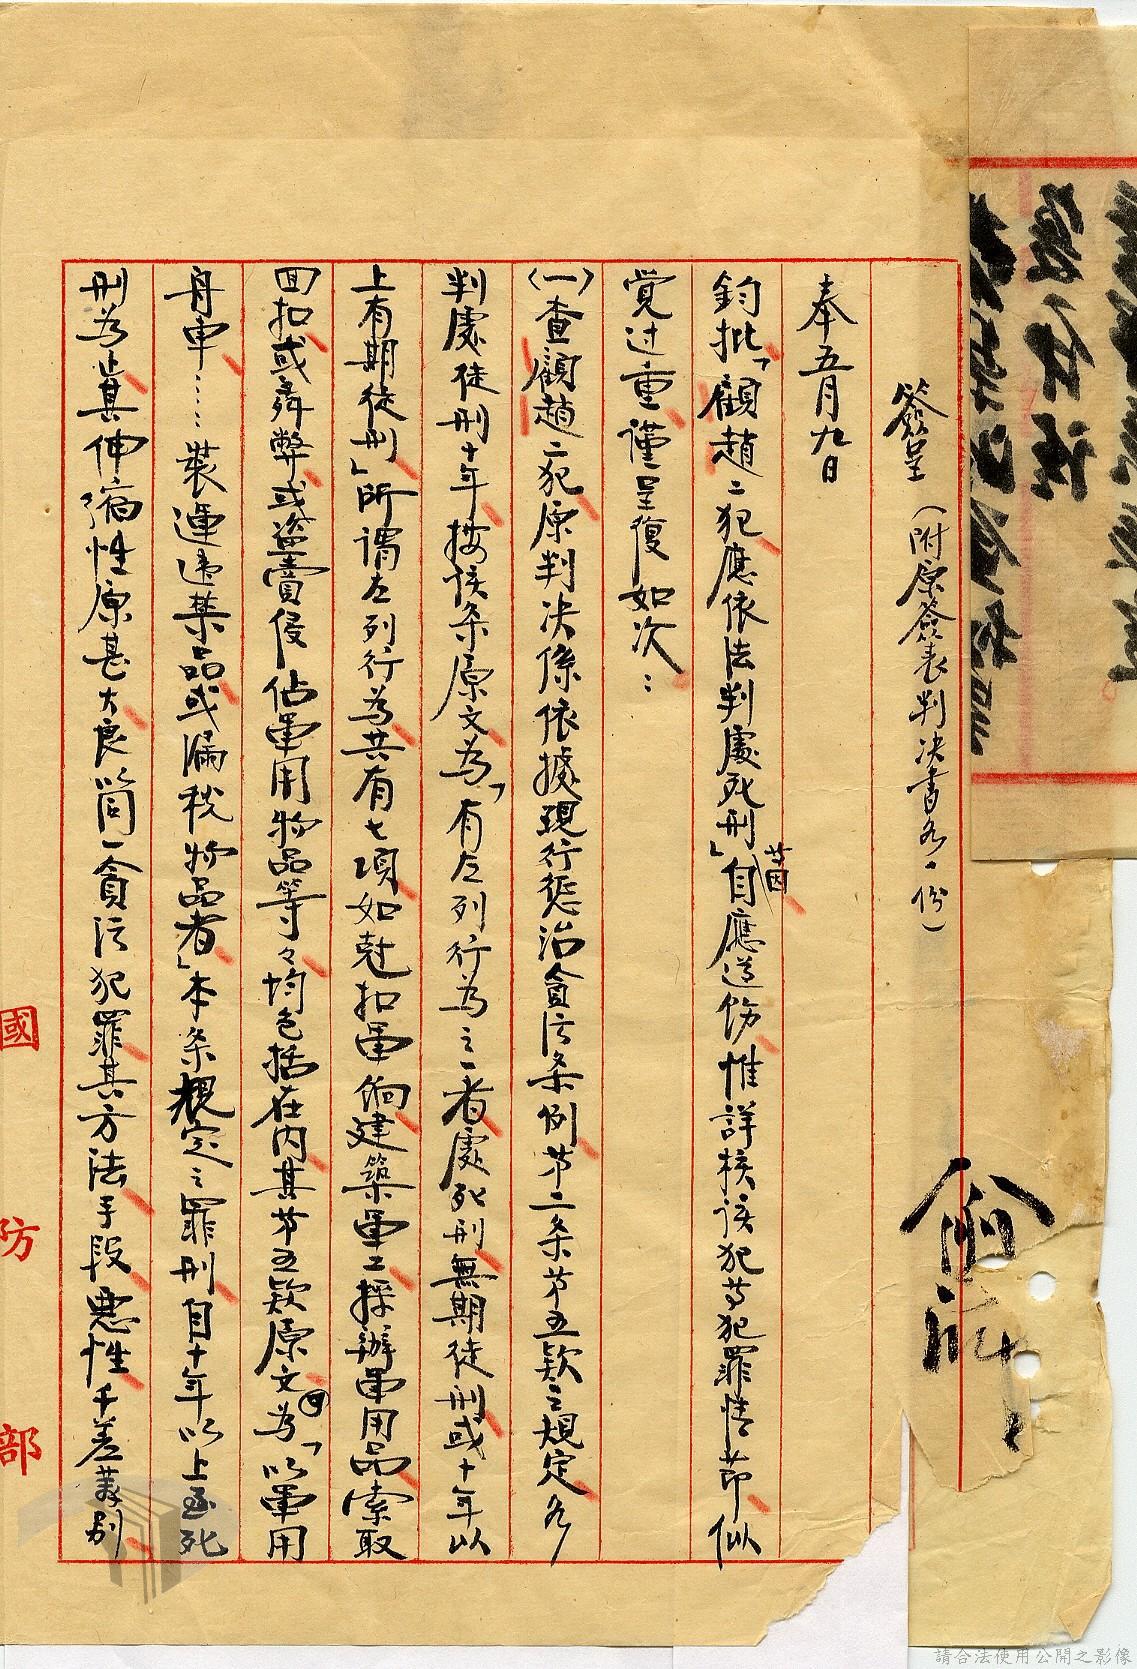 簽呈（附原簽表判决書各一份）
奉五月九日
鈞批「顧趙二犯應依法判處死刑」等因自應遵飭惟詳核该犯等犯罪情节似
覚过重謹呈復如次：
(一)查顧趙二犯原判决係依據現行惩治貪污条例第二条第五欵之規定各
判處徒刑十年按该条原文為「有左列行為之一者處死刑無期徒刑或十年以
上有期徒刑」所谓左列行為共有七項如尅扣軍餉建築軍工採辦軍用品索取
回扣或舞弊或盗賣侵佔軍用物品等々均包括在内其第五欵原文為「以軍用
舟車……装運違禁品或漏税物品者」本条規定之罪刑自十年以上至死
刑為止其伸缩性原甚大良以同一貪污犯罪其方法手段惡性千差萬別
國防部
請合法使用公開之影像